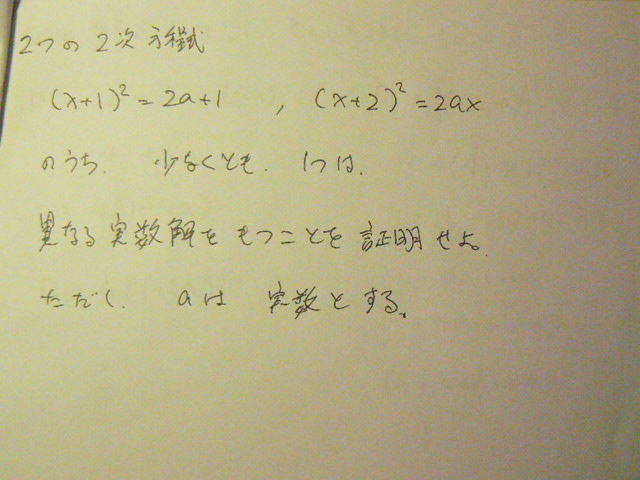 2つの2次方程式
(x+1)² = 2a+1 , (x+2)² = 2ax
のうち. 少なくとも. 1つは.
異なる実数解をもつことを証明せよ。
ただし. aは実数とする。